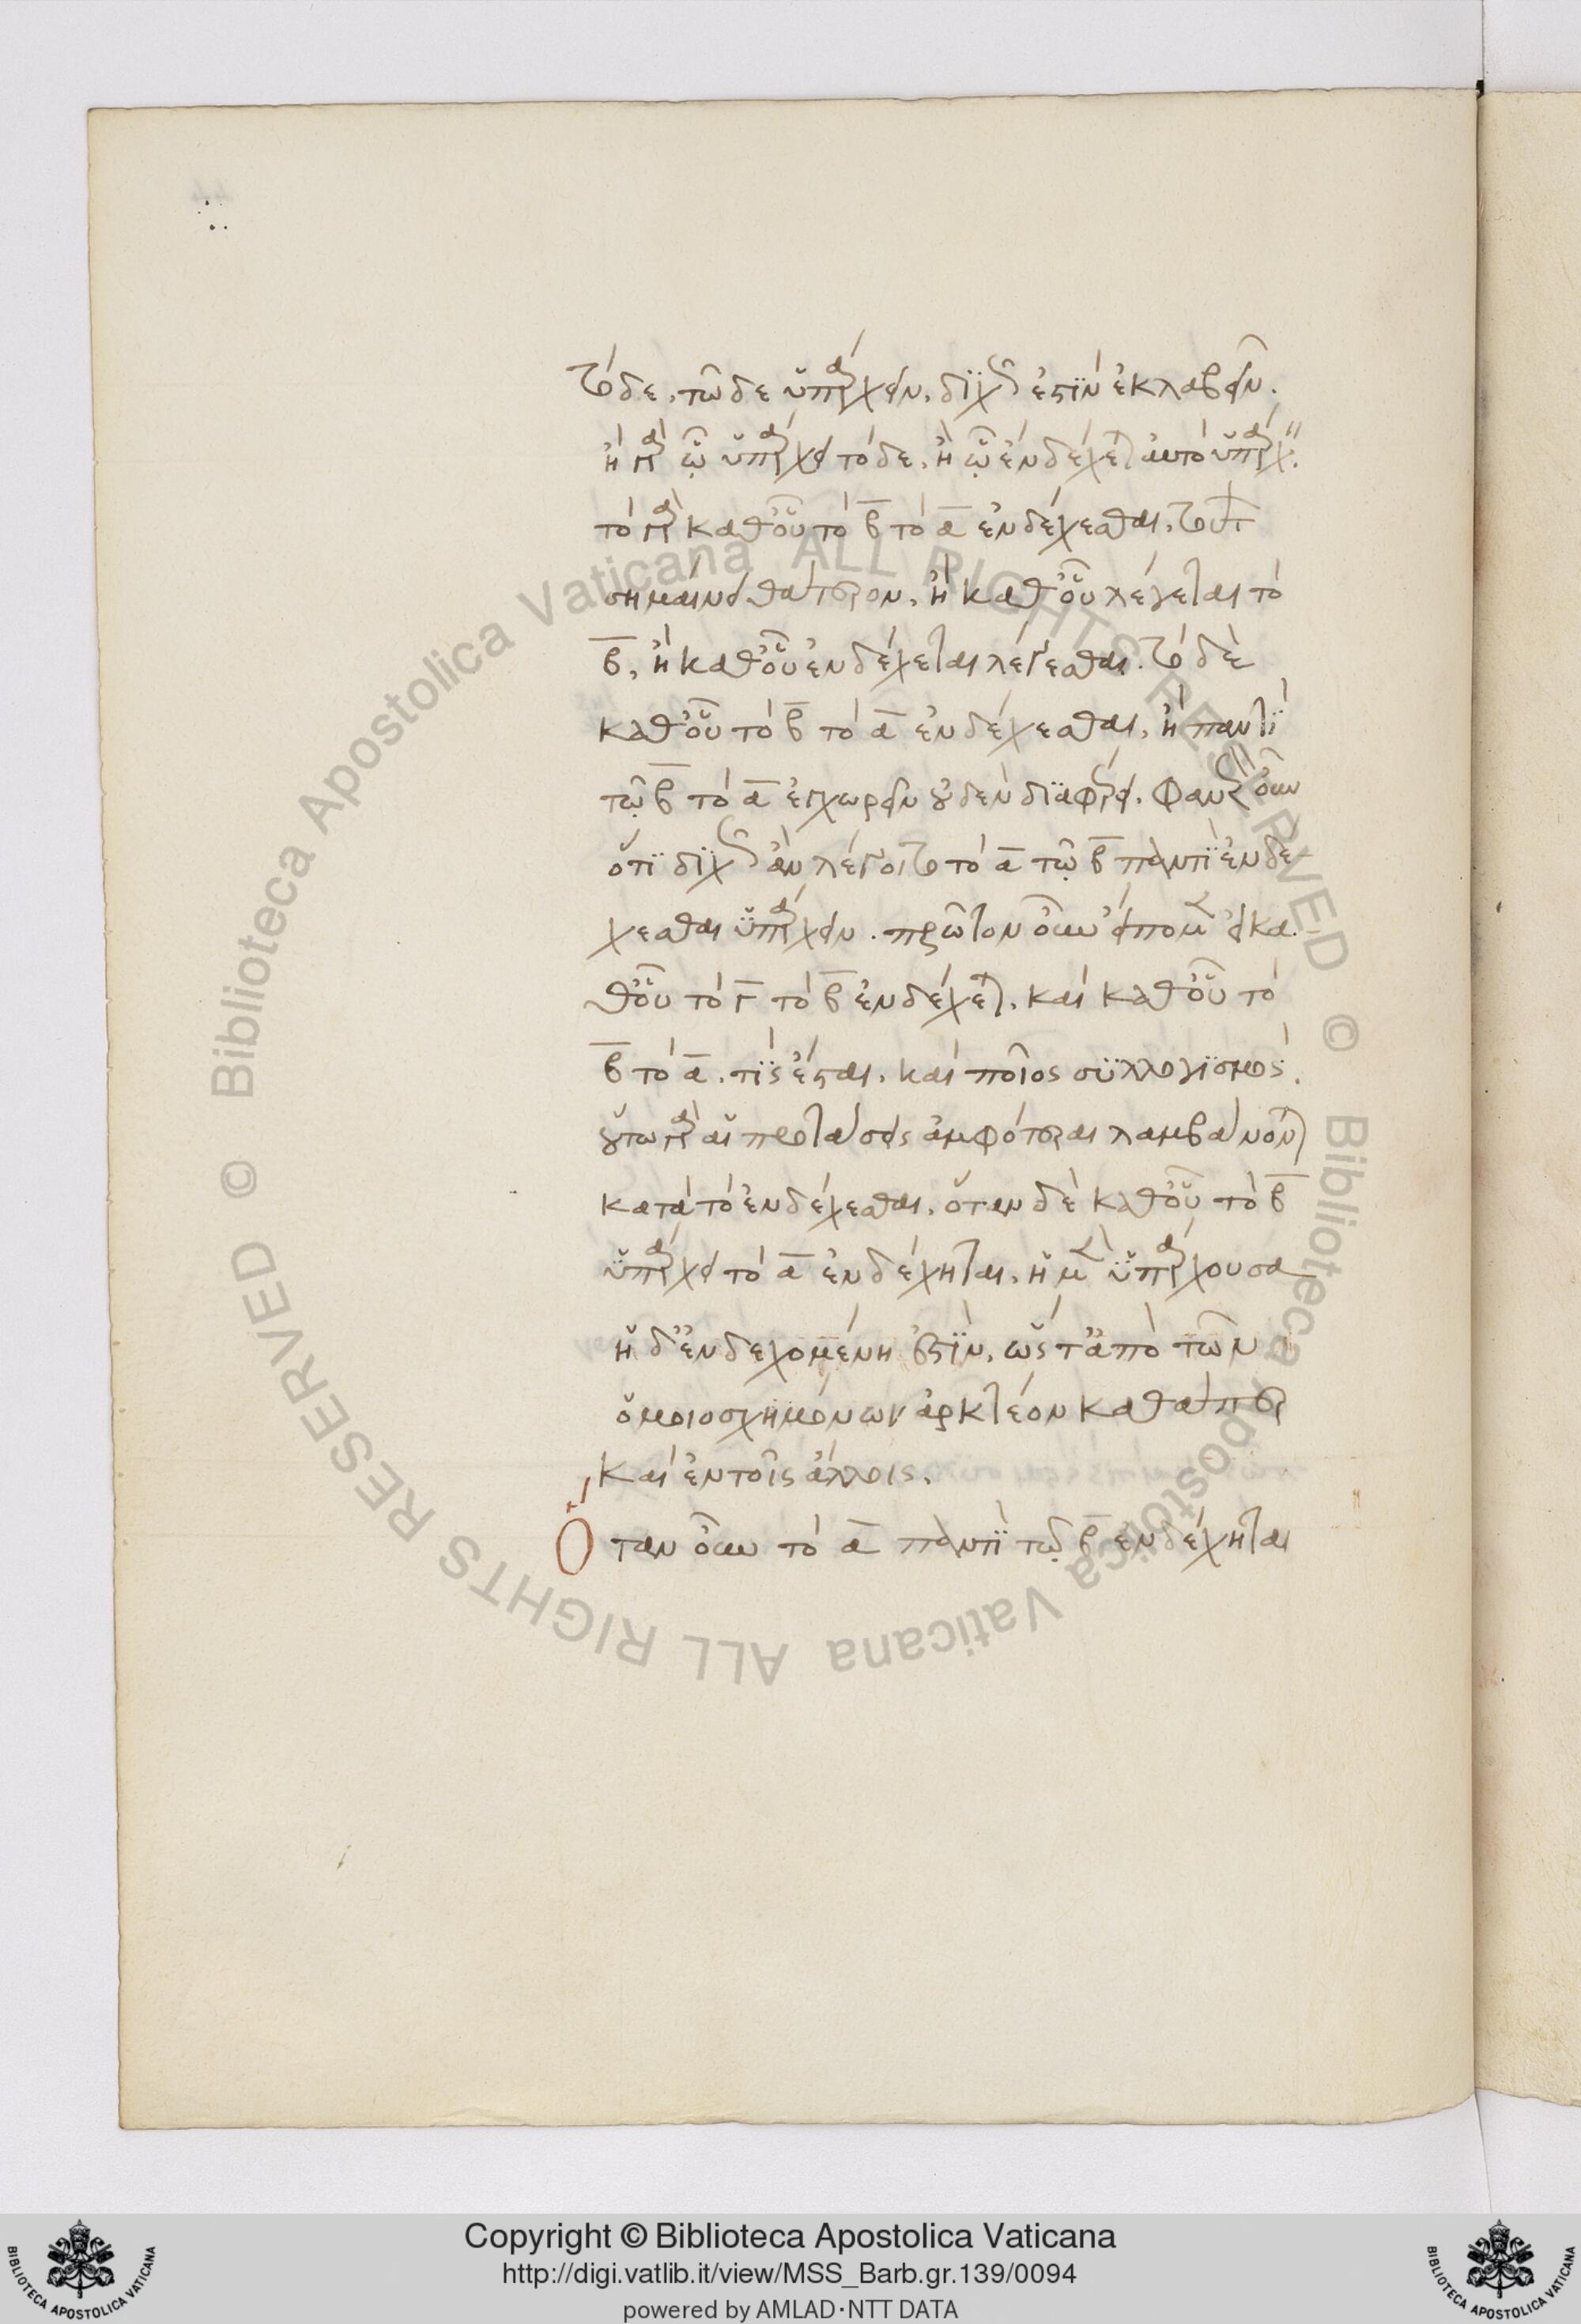 τόδε, τῶδε ὑπάρχειν, διχῶς ἐστιν ἐκλαβεῖν.
ἢ γὰρ ᾧ ὑπάρχει τόδε, ἢ ᾧ ἐνδέχεται αυτὸ ὑπάρχειν.
τὸ γὰρ καθ' οὗ τὸ β̅ τὸ α̅ ἐνδέχεσθαι, τούτων
σημαίνει θάτερον, ἢ καθ' οὗ λέγεται τὸ
β̅, ἢ καθ' οὗ ἐνδέχεται λέγεσθαι. τὸ δὲ
καθ' οὗ τὸ β̅ τὸ α̅ ἐνδέχεσθαι, ἢ παντὶ
τῷ β̅ τὸ α̅ ἐγχωρεῖν οὐδὲν διαφέρει. φανερὸν οὖν
ὅτι διχῶς ἂν λέγοιτο τὸ α̅ τῷ β̅ παντὶ ἐνδέ-
χεσθαι ὑπάρχειν. πρῶτον οὖν εἴπομεν εἰ κα-
θ' οὗ τὸ γ̅ τὸ β̅ ἐνδέχεται, καὶ καθ' οὗ τὸ
β̅ τὸ α̅, τίς ἔσται, καὶ ποῖος συλλογισμός.
οὕτω γὰρ αἱ προτάσεις ἀμφότεραι λαμβάνονται
κατὰ τὸ ἐνδέχεσθαι, ὅταν δὲ καθ' οὗ τὸ β̅
ὑπάρχει τὸ α̅ ἐνδέχηται, ἡ μὲν ὑπάρχουσα
ἡ δ' ἐνδεχομένη ἐστίν, ὥστ' ἀπὸ τῶν
ὁμοιοσχημόνων ἀρκτέον καθάπερ
καὶ ἐν τοῖς ἄλλοις.
Ὅταν οὖν τὸ α̅ παντὶ τῷ β̅ ἐνδέχηται
© Biblioteca Apostolica Vaticana ALL RIGHTS RESERVED
© Biblioteca Apostolica Vaticana ALL RIGHTS RESERVED
BIBLIOTECA APOSTOLICA VATICANA
Copyright © Biblioteca Apostolica Vaticana
http://digi.vatlib.it/view/MSS_Barb.gr.139/0094
powered by AMLAD·NTT DATA
BIBLIOTECA APOSTOLICA VATICANA